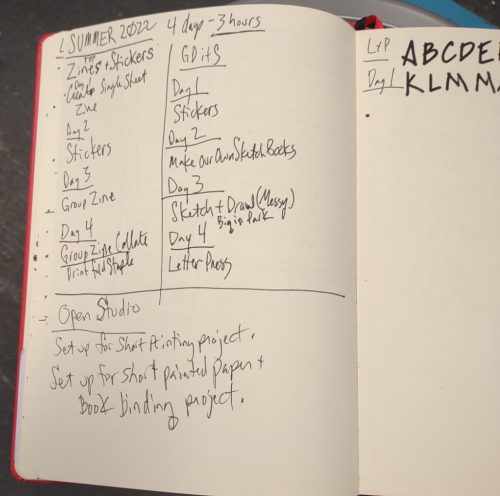 SUMMER 2022 4 days - 3 hours
Zines + Stickers
Day 1
Create Single Sheet
Zine
Day 2
Stickers
Day 3
Group Zine
Day 4
Group Zine Collate
Print Fold Staple
GDitS
Day 1
Stickers
Day 2
Make Our Own SketchBooks
Day 3
Sketch + Draw (Messy)
Big in Park
Day 4
Letter Press
Open Studio
Set up for short printing project.
Set up for short painted paper +
Book binding project.
LTP
ABCDE
Day 1 KLMM